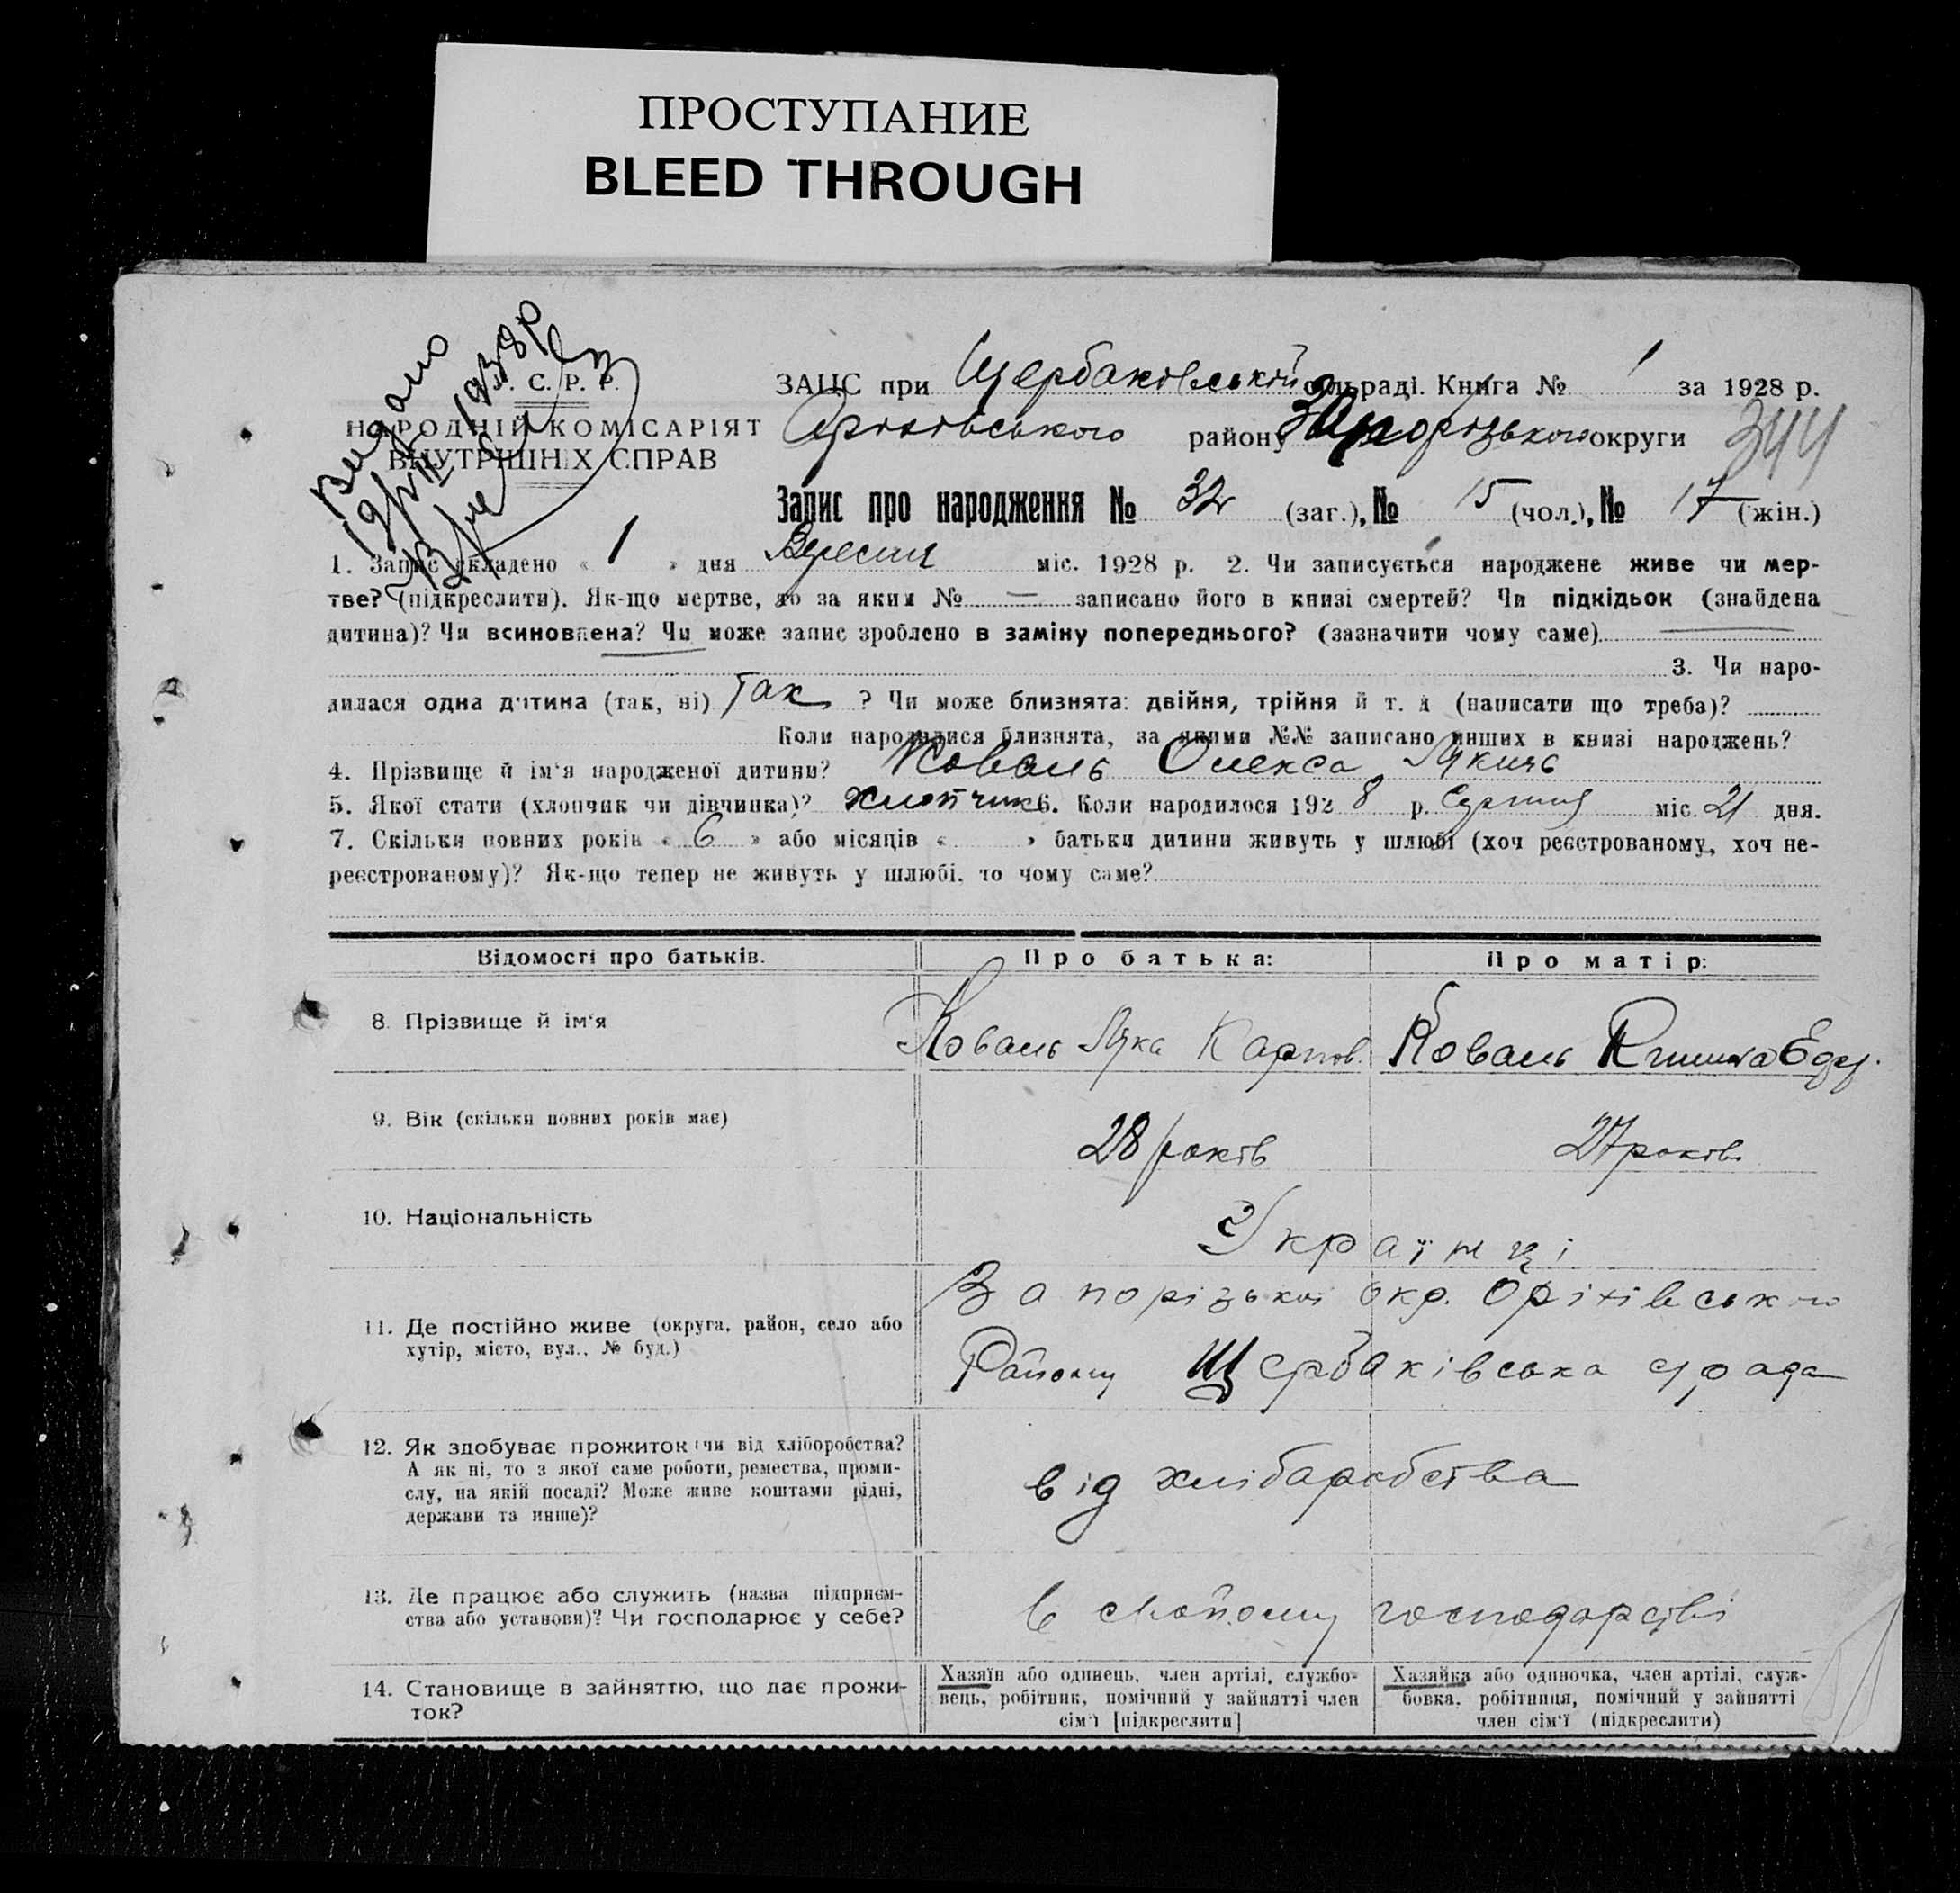 ПРОСТУПАНИЕ
BLEED THROUGH
Видано
С. Р. Р.
НАРОДНІЙ КОМІСАРІЯТ
ВНУТРІШНІХ СПРАВ
ЗАЦС при Щербаківській сільраді. Книга № 1 за 1928 р.
Оріхівського району Запорізького округи 344
Запис про народження № 32 (заг.), № 15 (чол.), № 17 (жін.)
1. Запис складено « 1 » дня Вересня міс. 1928 р. 2. Чи записується народжене живе чи мер-
тве? (підкреслити). Як-що мертве, то за яким № — записано його в книзі смертей? Чи підкідьок (знайдена
дитина)? Чи всиновлена? Чи може запис зроблено в заміну попереднього? (зазначити чому саме)
3. Чи наро-
дилася одна дитина (так, ні) Так ? Чи може близнята: двійня, трійня й т. д (написати що треба)?
Коли народилися близнята, за якими №№ записано инших в книзі народжень?
4. Прізвище й ім'я народженої дитини? Коваль Олекса Лукичь
5. Якої статі (хлопчик чи дівчинка)? хлопчик 6. Коли народилося 1928 р. Серпня міс. 21 дня.
7. Скільки повних років « 6 » або місяців « » батьки дитини живуть у шлюбі (хоч реєстрованому, хоч не-
реєстрованому)? Як-що тепер не живуть у шлюбі, то чому саме?
Відомості про батьків. Про батька: Про матір:
8. Прізвище й ім'я Коваль Лука Карпов. Коваль
9. Вік (скільки повних років має) 28 років 27 років
10. Національність Українці
11. Де постійно живе (округа, район, село або
хутір, місто, вул., № буд.)
Запорізької окр. Оріхівського
Району Щербаківська с/рада
12. Як здобуває прожиток (чи від хліборобства?
А як ні, то з якої саме роботи, ремества, проми-
слу, на якій посаді? Може живе коштами рідні,
держави та инше)?
від хлібаробства
13. Де працює або служить (назва підприєм-
ства або установи)? Чи господарює у себе?
в свойому господарстві
14. Становище в зайняттю, що дає прожи-
ток?
Хазяїн або одинець, член артілі, службо-
вець, робітник, помічний у зайнятті член
сім'ї [підкреслити]
Хазяйка або одиночка, член артілі, служ-
бовка, робітниця, помічний у зайнятті
член сім'ї (підкреслити)